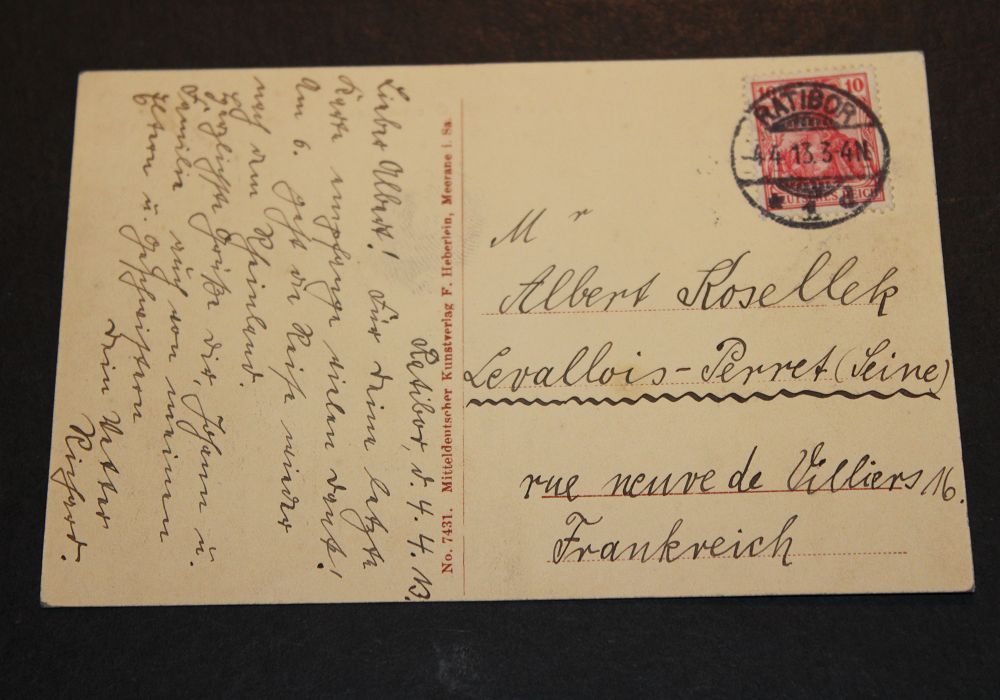 Ratibor, d. 4. 4. 13.
Lieber Albert! Für deine letzte
Karte empfange vielen Dank!
Am 6. geht die Reise wieder
nach dem Rheinland.
Herzlichste Grüße dir, Johann u.
Familie auch von meinen
Eltern u. Geschwistern
dein Vetter
Richard.
No. 7431. Mitteldeutscher Kunstverlag F. Heberlein, Meerane i. Sa.
10 10
DEUTSCHES REICH
RATIBOR
4.4.13.3-4N
* 1 d
Mr
Albert Kosellek
Levallois-Perret (Seine)
rue neuve de Villiers 16.
Frankreich